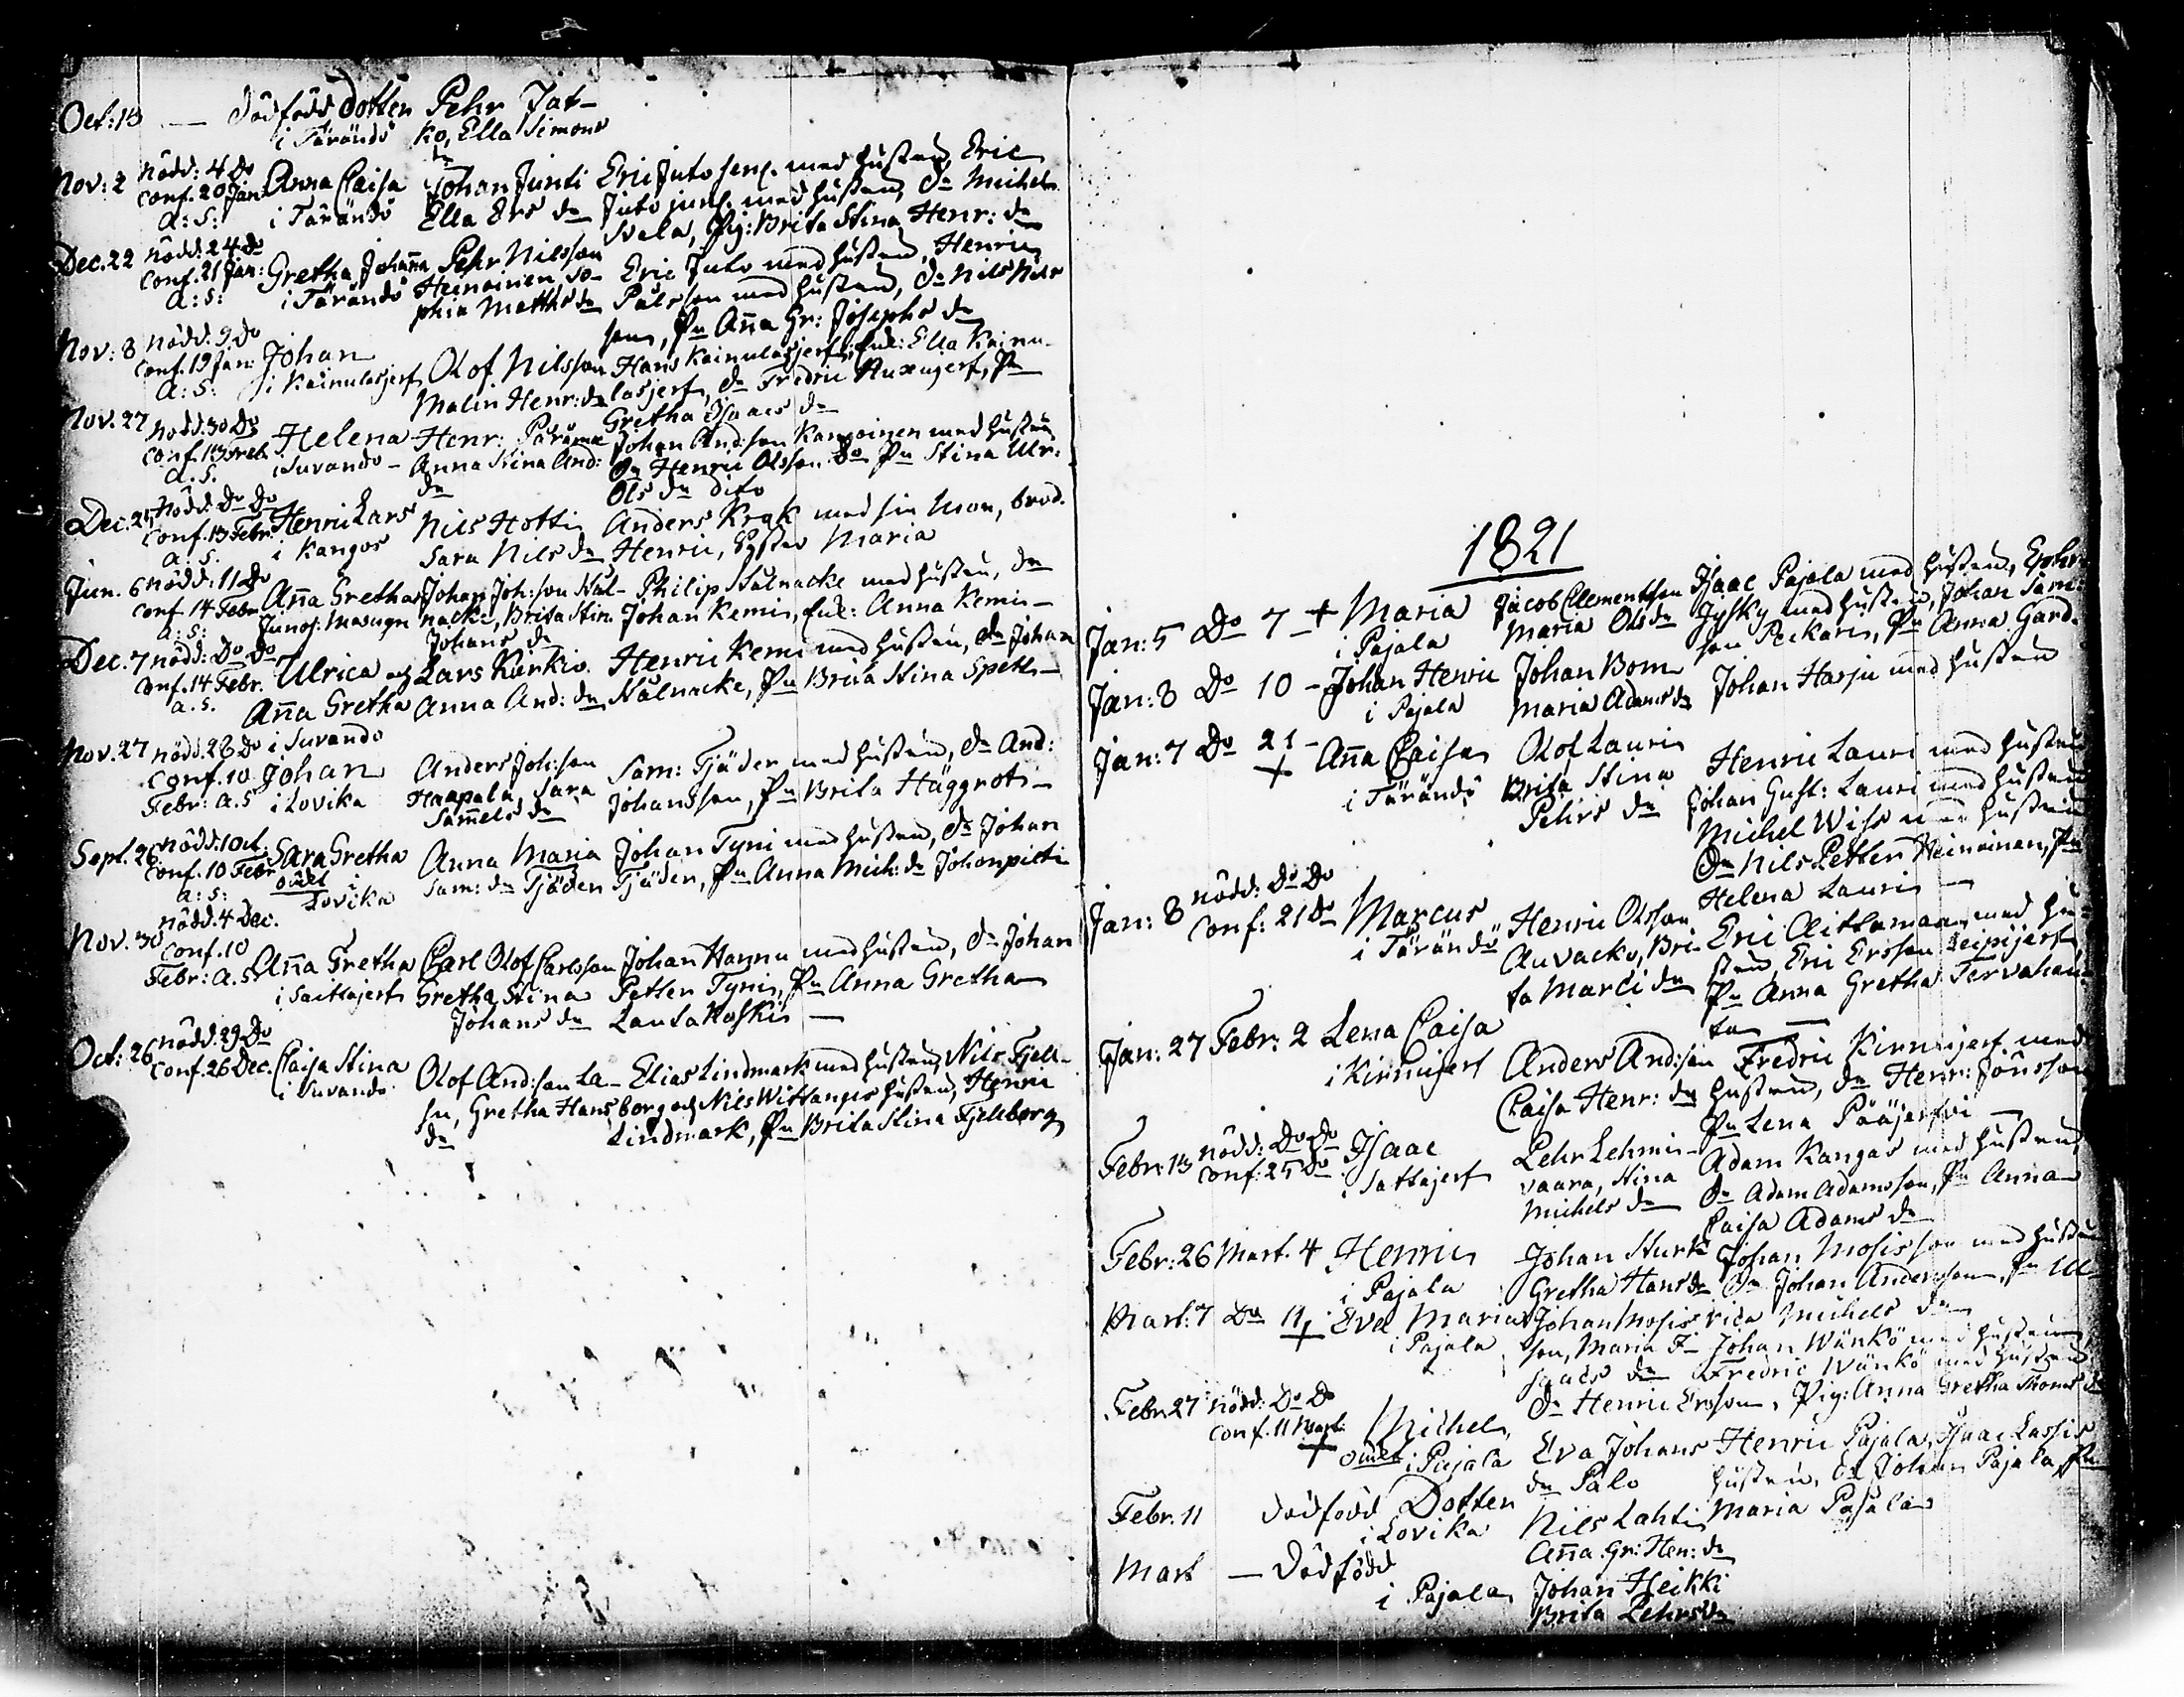 Oct: 13 — dödfödd dotter Pehr Jat-
i Tärändö ko, Ella Simons
dr
Nov: 2 nödd: 4 Do Anna Caisa Johan Junti Eric Juto sen: med hustru, Eric
conf. 20 Jan: i Tärändö Ella Ers dr Juto jun: med hustru, dr Michel
a: s: Svala, Pig: Brita Stina Henr: dr
Dec. 22 nödd: 24 do Gretha Johanna Pehr Nilsson Eric Juto med hustru, Henric
conf. 21 Jan: i Tärändö Heinoinen, So- Pålsson med hustru, dr Nils Nils
a: s: phia Matths dr son, Pn Anna Gr: Josephs dr
Nov: 8 nödd: 9 do Johan Olof Nilsson Hans Kainulasjerf, Enk: Ella Kainu-
conf. 19 Jan: i Kainulasjerf Malin Henr: dr lasjerf, dr Fredric Ruxujerf, Pn
a: s: Gretha Isaacs dr
Nov. 27 nödd: 30 Do Helena Henr: Johan And:son Kangoinen med hustru
conf. 13 Feb i Suvando - Anna Stina And: dr Henric Olsson Do Pn Stina Ulr:
a. s. dr Ols dr dito
Dec. 25 nödd: Do Do Henric Lars Nils Hotti Anders Krak med sin mor, brod.
conf. 13 Febr. i Kangos Sara Nils dr Henric, Syster Maria
a. s.
Jun. 6 nödd: 11 Do Anna Gretha Johan Joh:son Nål- Philip Nålnacke med hustru, dr
conf 14 Febr Junos: Masugn nacke, Brita Stin. Johan Kemi, Enk: Anna Kemi —
a: s: Johans dr
Dec. 7 nödd: Do Do Ulrica och Lars Kerkio Henric Kemi med hustru, dr Johan
conf. 14 Febr. Anna Gretha Anna And: dr Nålnacke, Pn Brita Stina Spett —
a. s. i Suvando
Nov. 27 nödd. 28 Do Johan Anders Joh:son Sam: Tjäder med hustru, dr And:
conf. 10 i Lovika Haapala, Sara Johansson, Pn Brita Häggrot —
Febr: a. s Samels dr
Sept. 26 nödd: 1 Oct. Sara Gretha Anna Maria Johan Tyni med hustru, dr Johan
conf. 10 Febr. oäkt Sam: dr Tjäder Tjäder, Pn Anna Mich: dr Johonpieti
a: s: Lovika
Nov. 30 nödd. 4 Dec.
conf. 10 Anna Gretha Carl Olof Carlsson Johan Hannu med hustru, dr Johan
Febr: a. s i Saittajerf Gretha Stina Petter Tyni, Pn Anna Gretha
Johans dr Lautakoski —
Oct: 26 nödd. 29 Do Caisa Stina Olof And:son La- Elias Lindmark med hustru, Nils Fjell-
conf. 26 Dec. i Suvando su, Gretha Hans borg och Nils Wittangis hustru, Henric
dr Lindmark, Pn Brita Stina Fjellborg
1821
Jan: 5 Do 7 + Maria Jacob Clementsson Isaac Pajala med hustru, Ephr:
i Pajala Maria Ols dr Jysky med hustru, Johan Sam:
son Peckari, Pn Anna Gard.
Jan: 8 Do 10 - Johan Henric Johan Bom Johan Harju med hustru
i Pajala Maria Adams dr
Jan: 7 Do 21 - Anna Caisa Olof Lauri Henric Lauri med hustru
+ i Tärändö Brita Stina Johan Gust: Lauri med hustru
Pehrs dr Michel Wiss med hustru
dr Nils Petter Heinoinen, Pn
Helena Lauri —
Jan: 8 nödd: Do Do Marcus Henric Olsson Eric Aittamaa med hu-
conf: 21 Do i Tärändö Auvacko, Bri- stru, Eric Ersson Leipijerf
ta Marci dr Pn Anna Gretha Tervahau-
ta —
Jan: 27 Febr: 2 Lena Caisa Anders And:son Fredric Kirnujerf med
i Kirnujerf Caisa Henr: dr hustru, dr Henr: Jönsson
Pn Lena Pääjerfvi —
Febr: 13 nödd: Do Do Isaac Pehr Lehmi- Adam Kangas med hustru
conf: 25 Do i Sattajerf vaara, Stina dr Adam Adamsson, Pn Anna
Michels dr Caisa Adams dr
Febr: 26 Mart. 4 Henric Johan Sturk Johan Mosisson med hustru
i Pajala Gretha Hans dr dr Johan Andersson, Pn Ul-
Mart: 7 Do 11 + Eva Maria Johan Mosis rica Michels dr
i Pajala son, Maria I- Johan Wänkö med hustru
saacs dr Fredric Wänkö med hustru
dr Henric Ersson, Pig: Anna Gretha Thoms dr
Febr. 27 nödd: Do Do Michel Eva Johans Henric Pajala, Isaac Lassis
conf. 11 Mart. + oäkta i Pajala dr Palo hustru, dr Johan Pajala, Pn
Febr. 11 dödfödd Dotter Nils Lahti Maria Pajala
i Lovika Anna Gr: Hen: dr
Mart — Dödfödd Johan Heikki
i Pajala Brita Pehrs dr